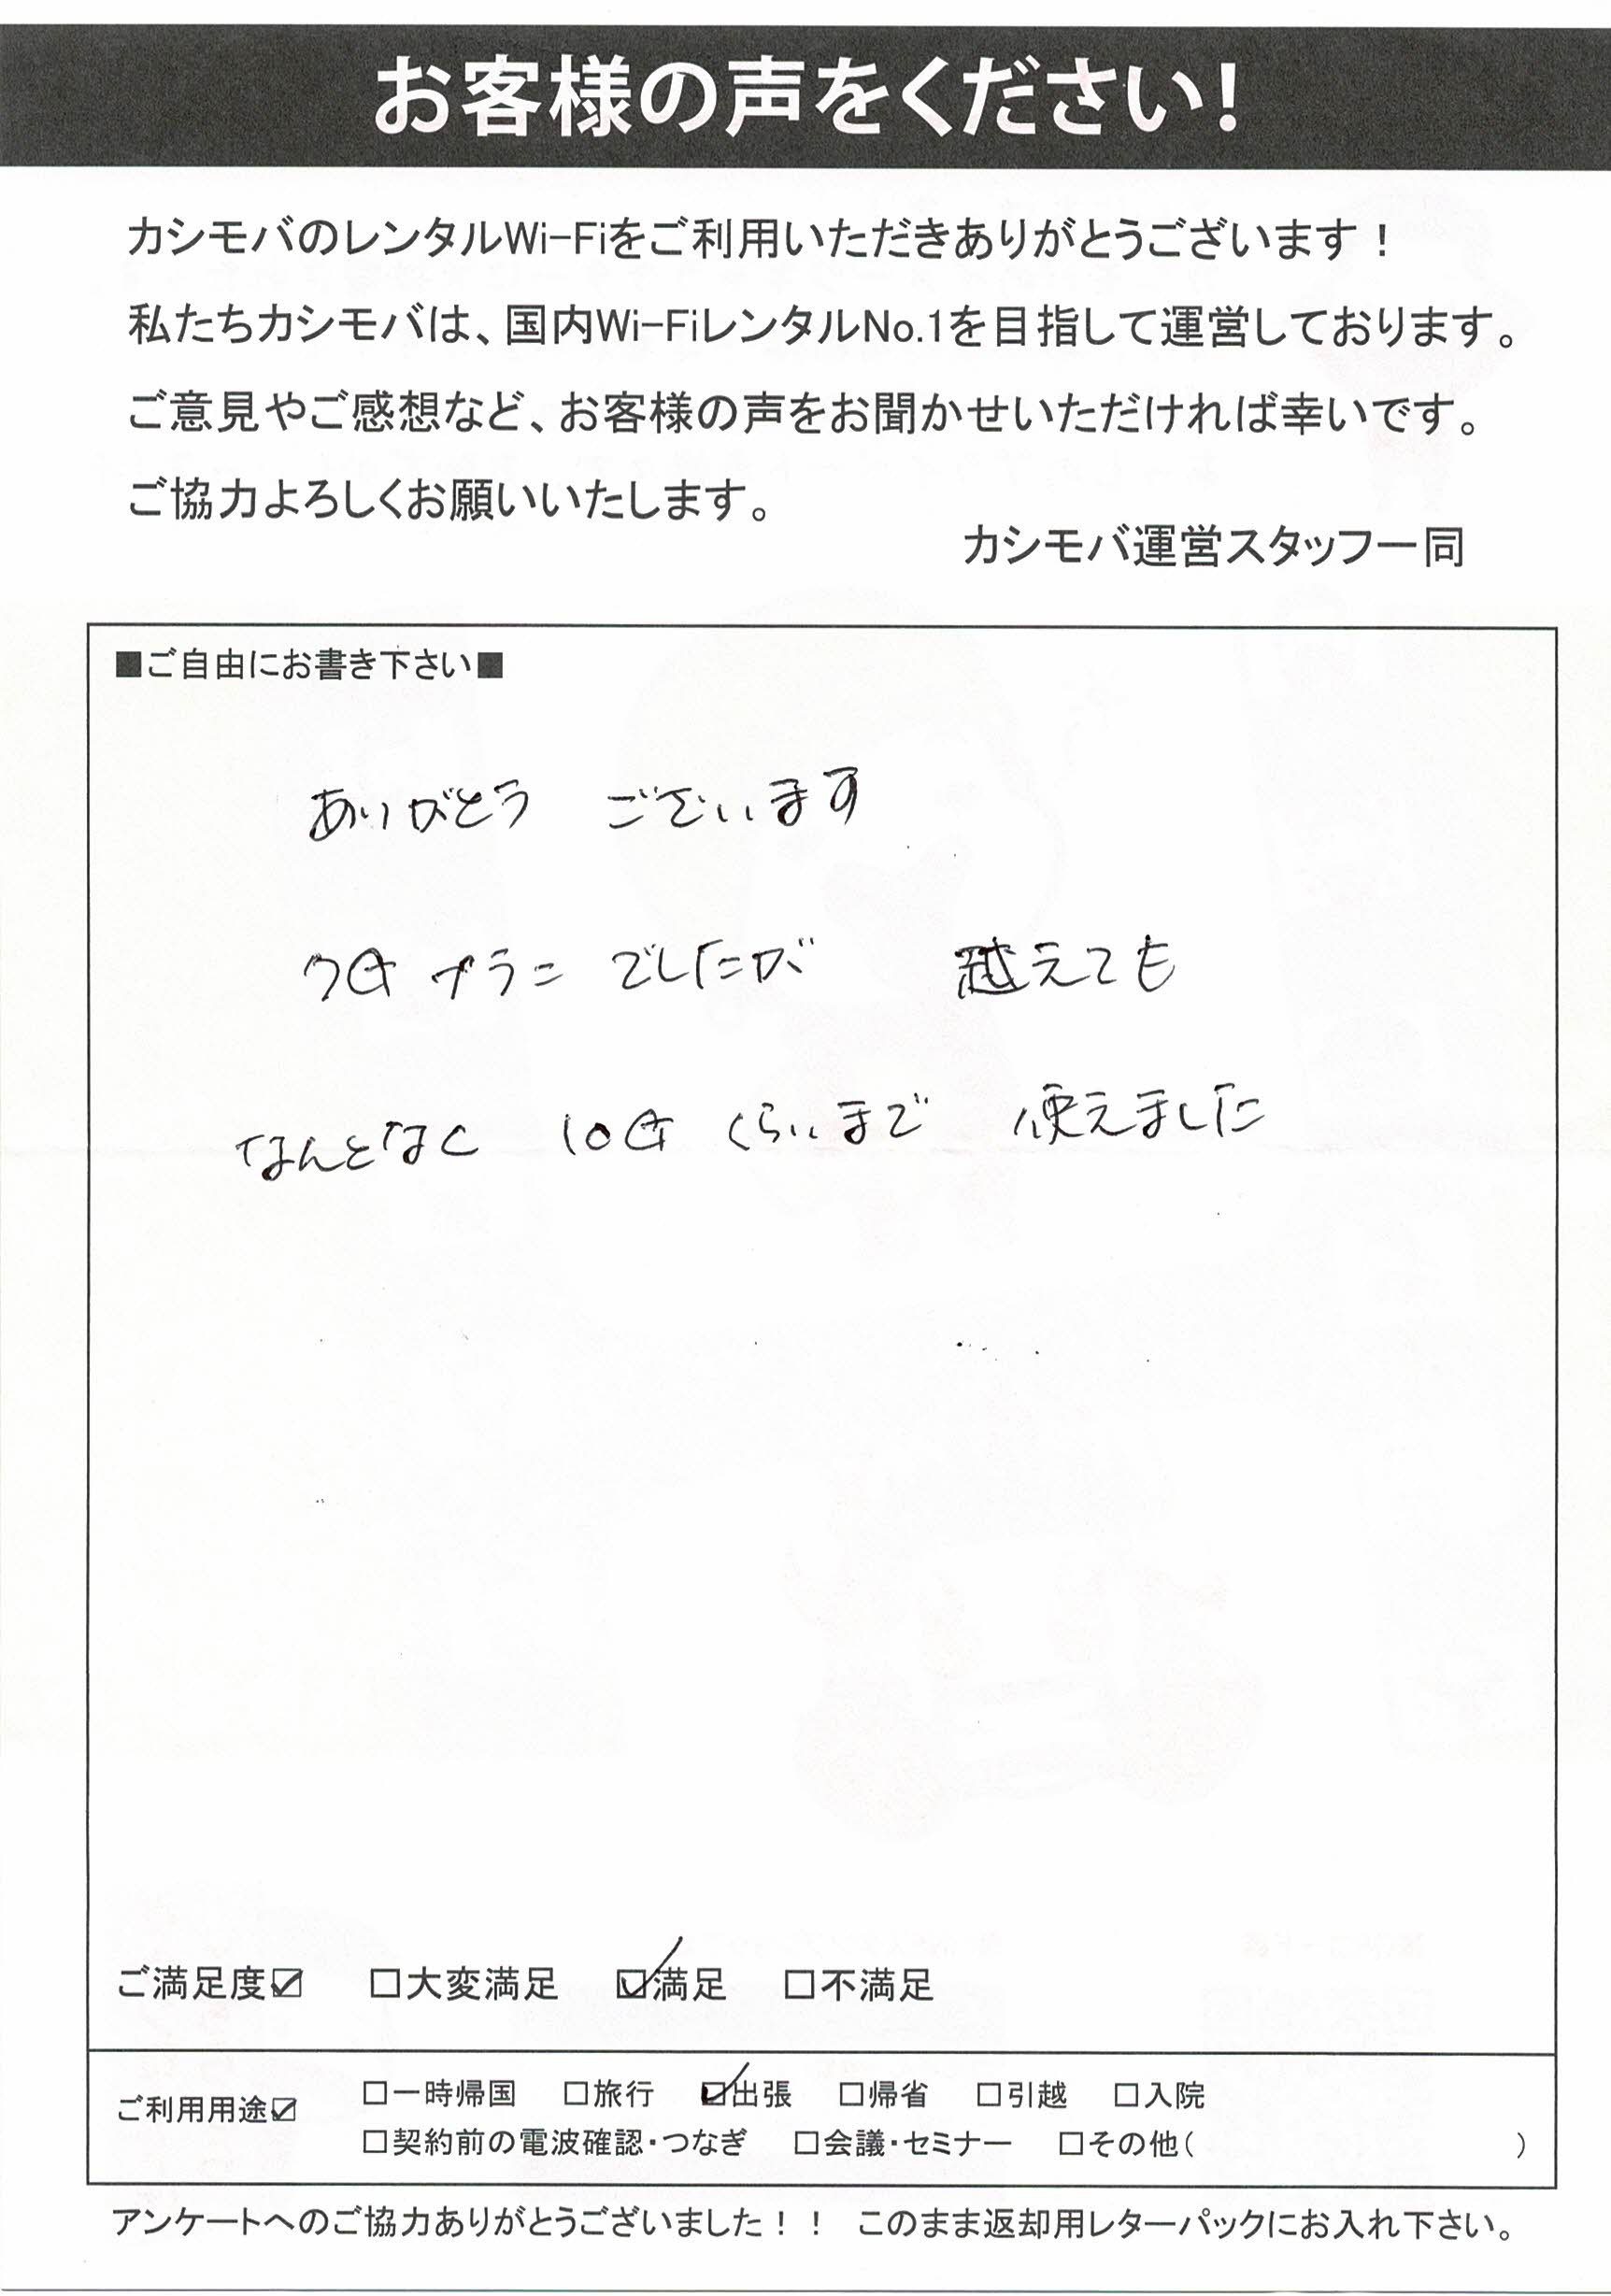 お客様の声をください!
カシモバのレンタルWi-Fiをご利用いただきありがとうございます！
私たちカシモバは、国内Wi-FiレンタルNo.1を目指して運営しております。
ご意見やご感想など、お客様の声をお聞かせいただければ幸いです。
ご協力よろしくお願いいたします。
カシモバ運営スタッフ一同
■ご自由にお書き下さい■
ありがとう ございます
7G プラン でしたが 越えても
なんとなく 10G くらいまで 使えました
ご満足度☑ □大変満足 ☑満足 □不満足
ご利用用途☑ □一時帰国 □旅行 ☑出張 □帰省 □引越 □入院
□契約前の電波確認・つなぎ □会議・セミナー □その他( )
アンケートへのご協力ありがとうございました！！ このまま返却用レターパックにお入れ下さい。